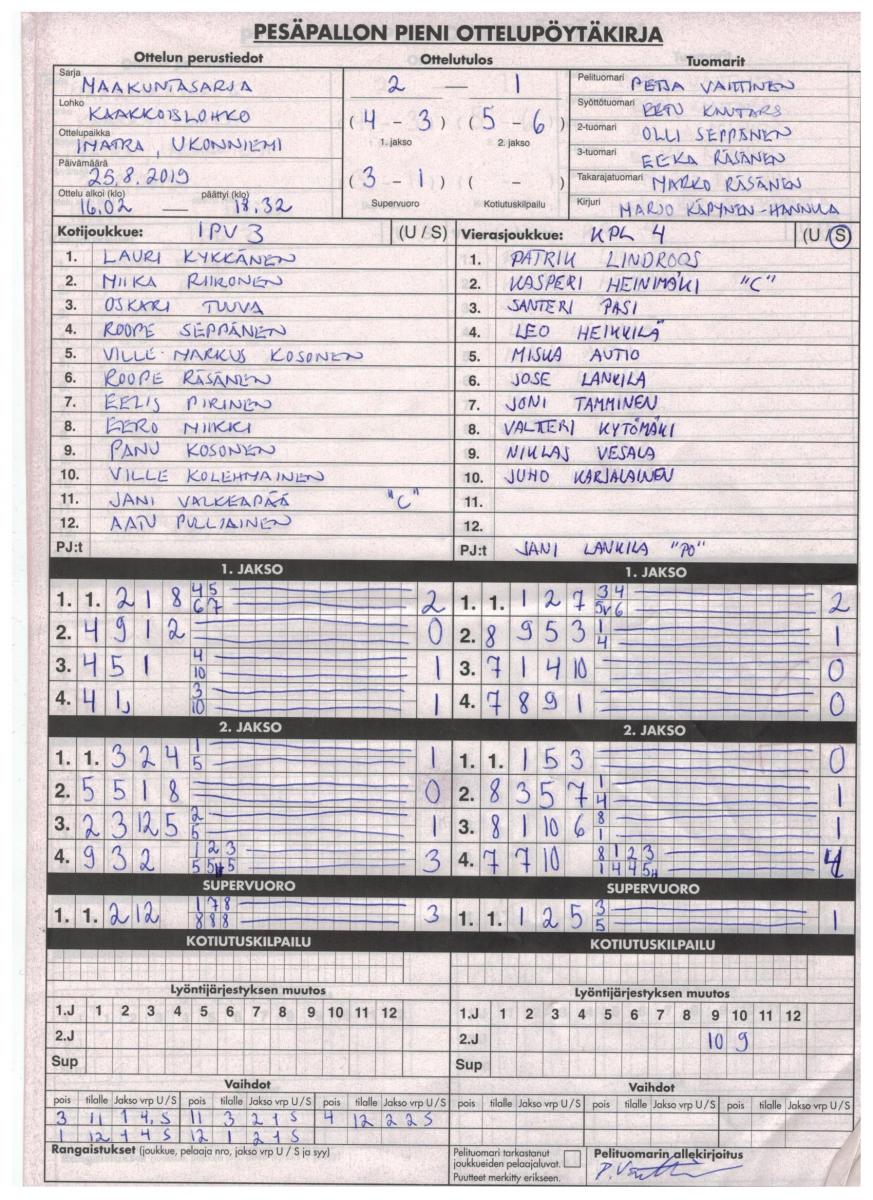 PESÄPALLON PIENI OTTELUPÖYTÄKIRJA
Ottelun perustiedot Ottelutulos Tuomarit
Sarja MAAKUNTASARJA
Lohko KAAKKOISLOHKO
Ottelupaikka IMATRA, UKONNIEMI
Päivämäärä 25.8.2019
Ottelu alkoi (klo) päättyi (klo)
16.02 — 18.32
2 — 1
(4 – 3) (5 – 6)
1. jakso 2. jakso
(3 – 1) ( – )
Supervuoro Kotiutuskilpailu
Pelituomari PETJA VAITTINEN
Syöttötuomari EETU
2-tuomari OLLI SEPPÄNEN
3-tuomari EEKA RÄSÄNEN
Takarajatuomari MARKO RÄSÄNEN
Kirjuri MARJO KÄPYNEN-HANNULA
Kotijoukkue: IPV 3 (U / S)
1. LAURI KYKKÄNEN
2. MIIKA RIIKONEN
3. OSKARI TUUVA
4. ROOPE SEPPÄNEN
5. VILLE-MARKUS KOSONEN
6. ROOPE RÄSÄNEN
7. EELIS PIRINEN
8. EERO MIIKKI
9. PANU KOSONEN
10. VILLE KOLEHMAINEN
11. JANI VALKEAPÄÄ "C"
12. AATU PULLIAINEN
PJ:t
Vierasjoukkue: KPL 4 (U / S)
1. PATRIK LINDROOS
2. KASPERI HEINIMÄKI "C"
3. SANTERI PASI
4. LEO HEIKKILÄ
5. MISKA AUTIO
6. JOSE LANKILA
7. JONI TAMMINEN
8. VALTTERI KYTÖMÄKI
9. NIKLAS VESALA
10. JUHO KARJALAINEN
11.
12.
PJ:t JANI LANKILA "PO"
1. JAKSO
1. 1. 2 1 8 45 67 2
2. 4 9 1 2 0
3. 4 5 1 4 10 1
4. 4 1, 3 10 1
1. JAKSO
1. 1. 1 2 7 34 5v6 2
2. 8 9 5 3 1 4 1
3. 7 1 4 10 0
4. 7 8 9 1 0
2. JAKSO
1. 1. 3 2 4 1 5 1
2. 5 5 1 8 0
3. 2 3 12 5 2 5 1
4. 9 3 2 1 2 3 3
2. JAKSO
1. 1. 1 5 3 0
2. 8 3 5 7 1 4 1
3. 8 1 10 6 8 1 1
4. 7 7 10 8 1 2 3 4
SUPERVUORO
1. 1. 2 12 178 888 3
SUPERVUORO
1. 1. 1 2 5 3 5 1
KOTIUTUSKILPAILU
KOTIUTUSKILPAILU
Lyöntijärjestyksen muutos
1.J 1 2 3 4 5 6 7 8 9 10 11 12
2.J
Sup
Lyöntijärjestyksen muutos
1.J 1 2 3 4 5 6 7 8 9 10 11 12
2.J 10 9
Sup
Vaihdot
pois tilalle Jakso vrp U/S pois tilalle Jakso vrp U/S pois tilalle Jakso vrp U/S
3 11 1 4, S 11 3 2 1 S 4 12 2 2 S
1 12 1 4 S 12 1 2 1 S
Vaihdot
pois tilalle Jakso vrp U/S pois tilalle Jakso vrp U/S pois tilalle Jakso vrp U/S
Rangaistukset (joukkue, pelaaja nro, jakso vrp U / S ja syy)
Pelituomari tarkastanut
joukkueiden pelaajaluvat.
Puutteet merkitty erikseen.
Pelituomarin allekirjoitus